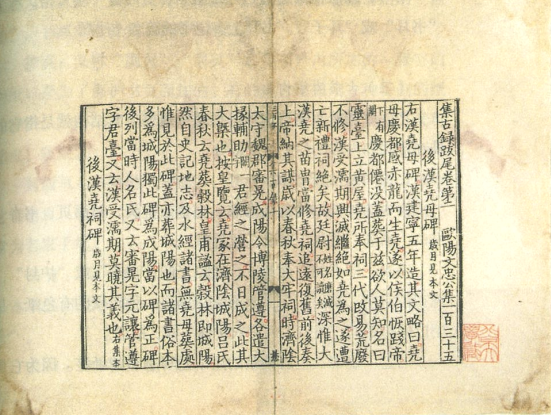 集古録跋尾卷第二 歐陽文忠公集一百三十五
後漢堯母碑 歲月見本文
右漢堯母碑漢建寧五年造其文略曰堯
母慶都感赤龍而生堯遂以侯伯恢踐帝
慶都僊没蓋葬于兹欲人莫知名曰
靈臺上立黄屋堯所奉祠三代改易荒廢
不修漢受濡期興滅繼絶如堯為之遂遭
亡新禮祠絶矣故廷尉 深惟大
漢堯之苗胄當修堯祠追遠復舊前後奏
上帝納其謀歲以春秋奉大牢祠時濟陰
太守魏郡審晃成陽令博陵管遵各遣大
掾輔助 君經之營之不日成之此其
大槩也按皇覽云堯冢在濟陰城陽吕氏
春秋云堯葬穀林皇甫謐云穀林即城陽
然自史記地志及水經諸書皆無堯母葬處
惟見於此碑蓋亦葬城陽也而諸書俗本
多為城陽獨此碑為成陽當以碑為正碑
後列當時人名氏又云審晃字元讓管遵
字君臺又云漢受濡期莫曉其義也 右集本
後漢堯祠碑 歲月見本文